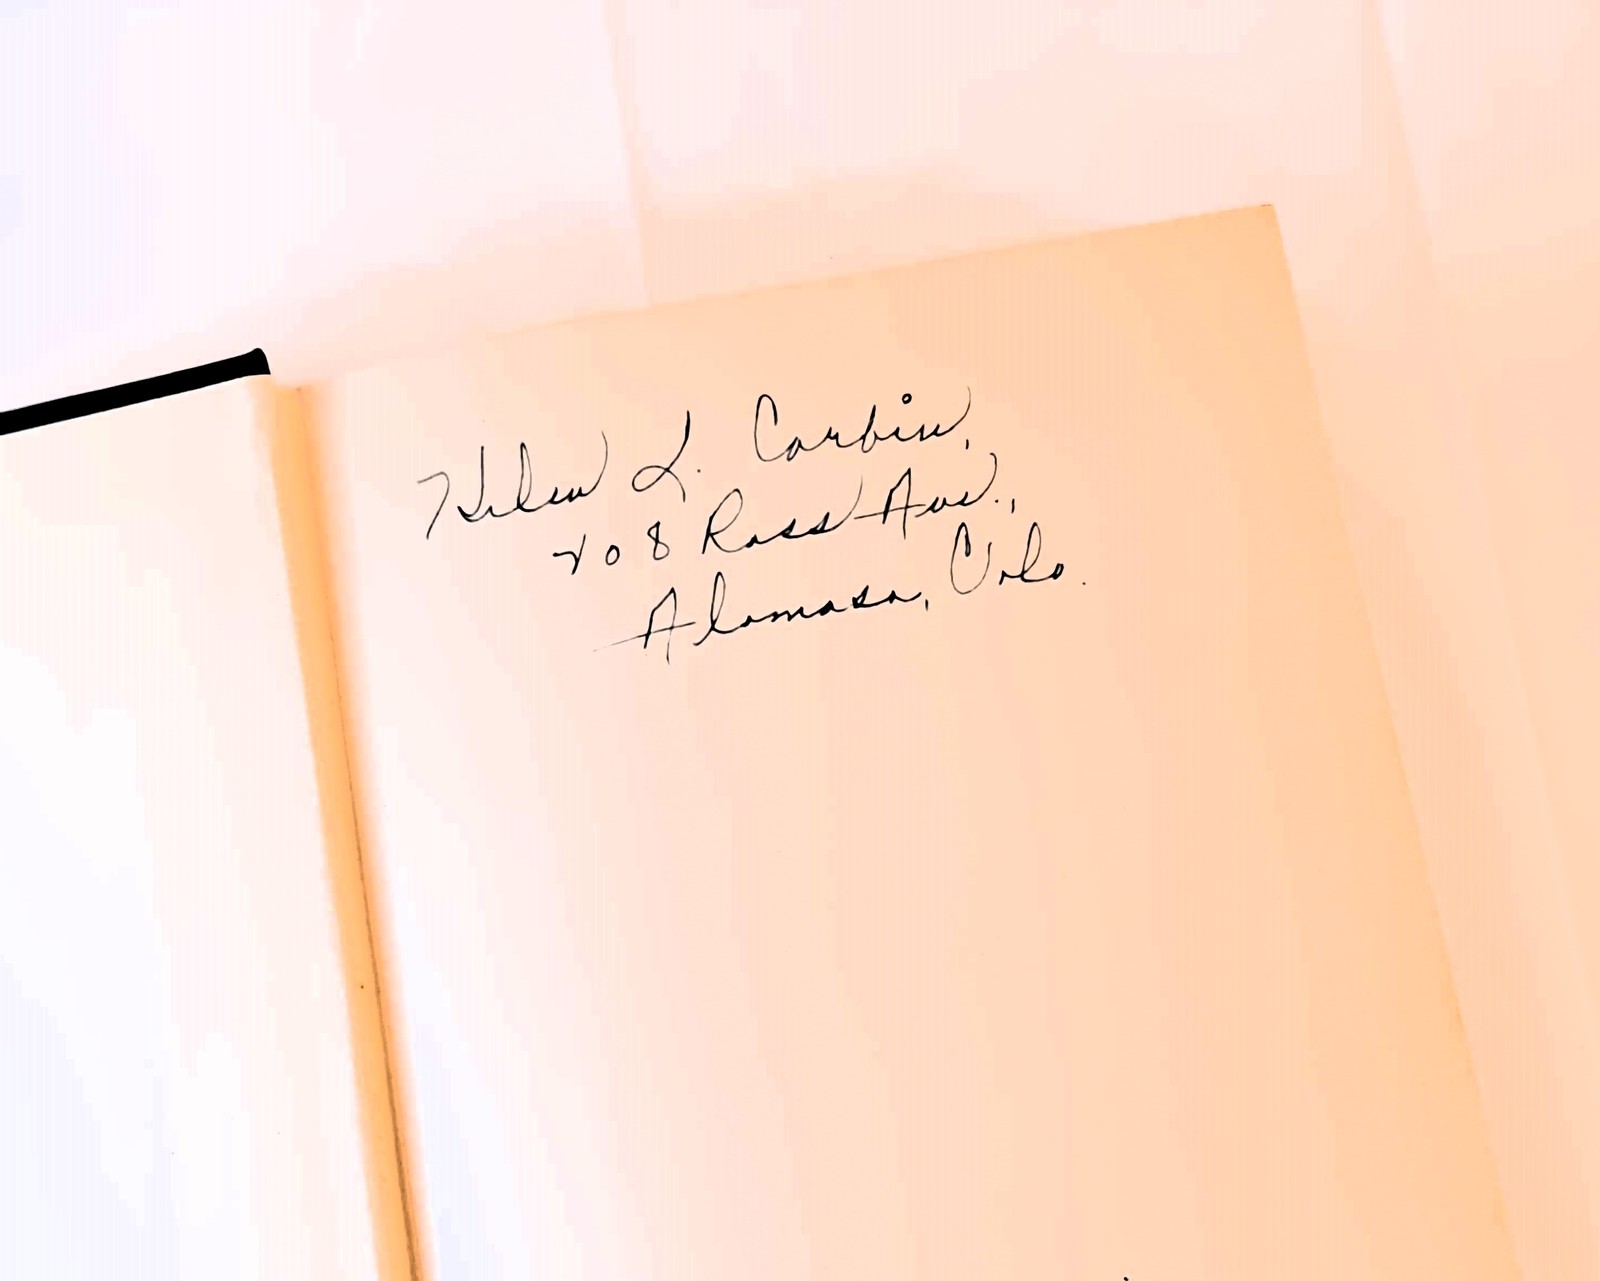 Helen L. Corbin,
208 Ross Ave.,
Alamosa, Colo.